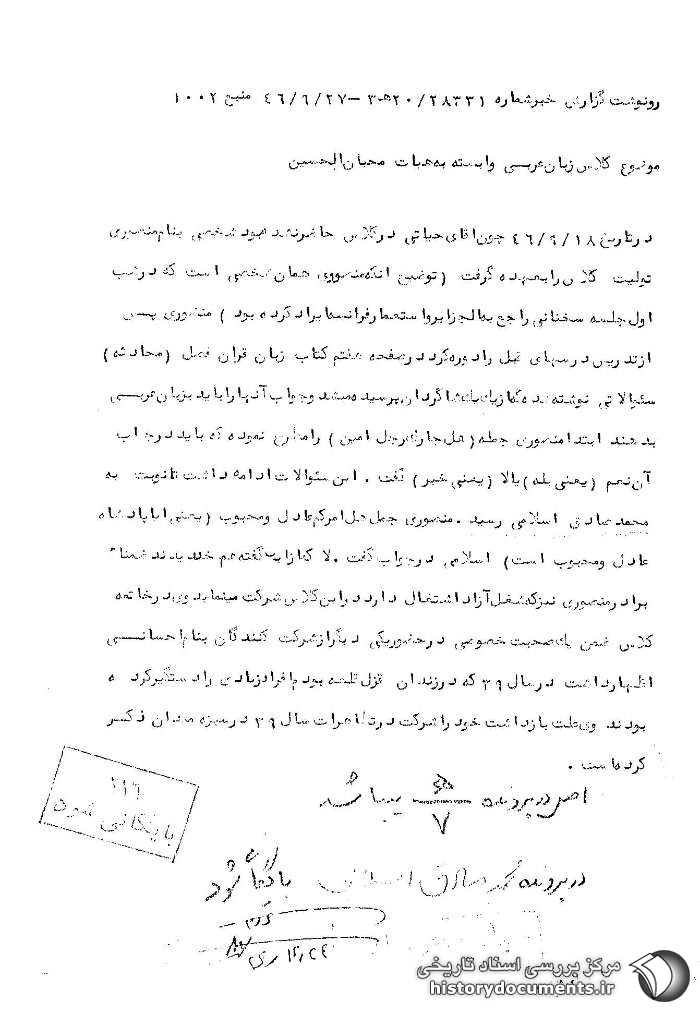 رونوشت گزارش خبر شماره ۲۸۳۳۱/ ۲۰هـ۳ – ۴۶/۶/۲۷ منبع ۱۰۰۲
موضوع کلاس زبان عربی وابسته به هیات محبان الحسین
در تاریخ ۴۶/۶/۱۸ چون اقای حیاتی در کلاس حاضر نشده بود شخصی بنام منصوری
تولیت کلاس را بعهده گرفت (توضیح انکه منصوری همان شخصی است که در شب
اول جلسه سخنانی راجع به الجزایر و استعمار فرانسه ایراد کرده بود) منصوری پس
از تدریس درسهای قبل را دوره کرد در صفحه هفتم کتاب زبان قران فصل (محادثه)
سئوالاتی نوشته شده که از یک یک شاگردان پرسیده میشد و جواب آنها را باید بزبان عربی
بدهند ابتدا منصوری جمله (هل جارک رجل امین) را مطرح نموده که باید در جواب
آن نعم (یعنی بله) یا لا (یعنی خیر) گفت . این سئوالات ادامه داشت تا نوبت به
محمد صادق اسلامی رسید . منصوری جمله هل امرکم عادل و محبوب (یعنی ایا پادشاه
عادل و محبوب است) اسلامی در جواب گفت . لا که از این گفته هم خندیدند ضمنا"
برادر منصوری نیز که شغل آزاد اشتغال دارد در این کلاس شرکت مینماید وی در خاتمه
کلاس ضمن یک صحبت خصوصی در حضور یکی دیگر از شرکت کنندگان بنام احسانی
اظهار داشت در سال ۳۹ که در زندان قزل قلعه بودم افراد زیادی را دستگیر کرده
بودند. وی علت بازداشت خود را شرکت در تظاهرات سال ۳۹ در سبزه میدان ذکر
کرده است .
اصل در پرونده ۷ میباشد
۲۱۶
بایگانی شود
در پرونده محمد صادق اسلامی بایگانی شود
مرکز بررسی اسناد تاریخی
historydocuments.ir